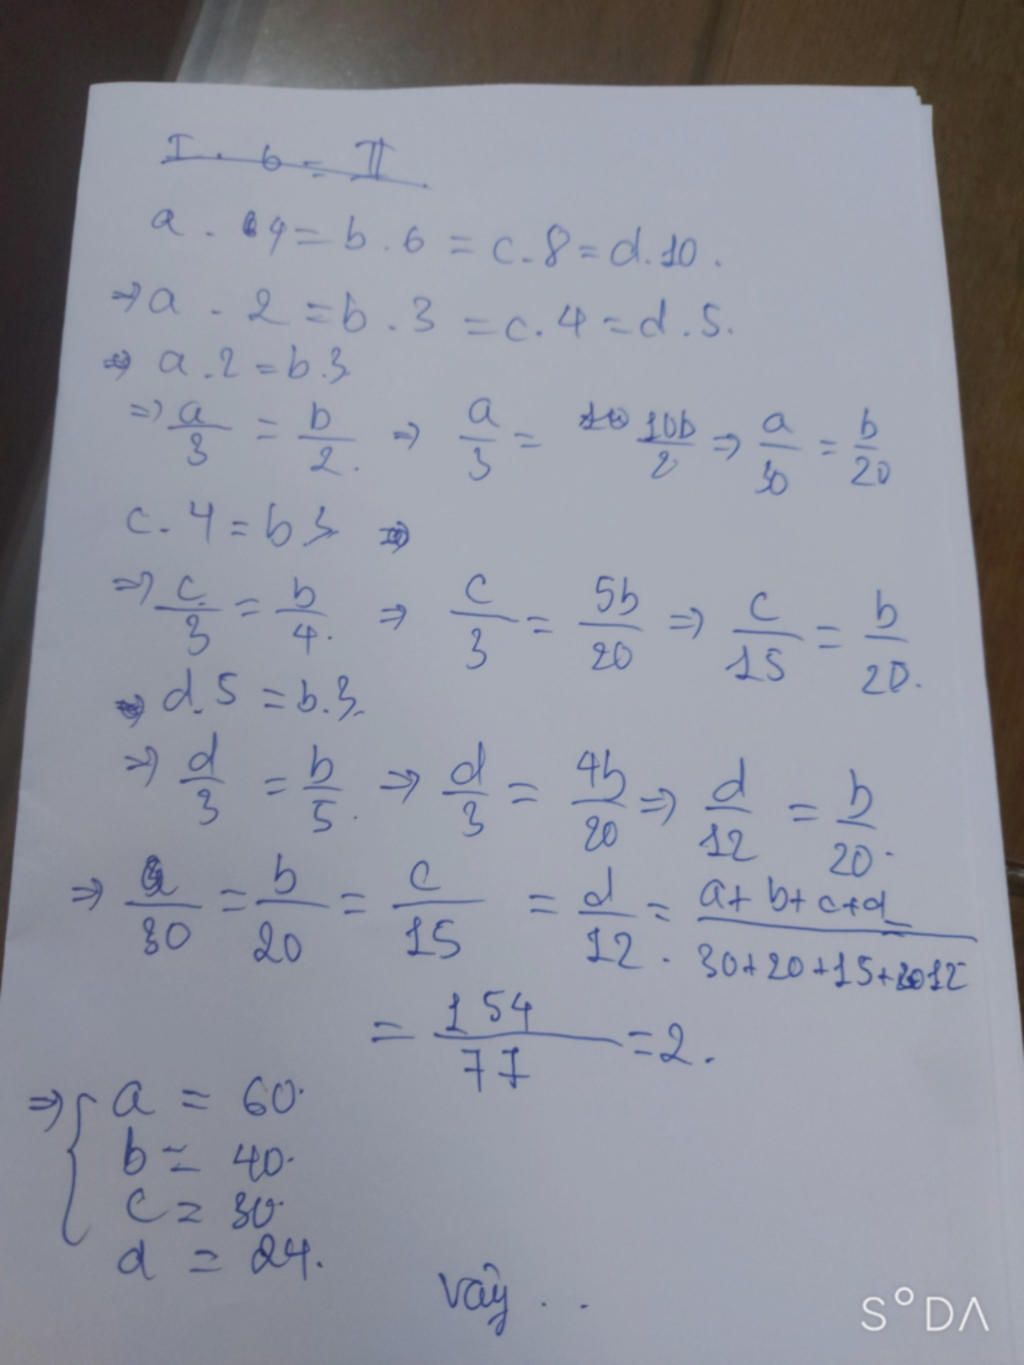 I . 6 = II
a . 4 = b . 6 = c . 8 = d . 10 .
⇒ a . 2 = b . 3 = c . 4 = d . 5 .
⇒ a . 2 = b . 3
⇒ a/3 = b/2 . ⇒ a/3 = 10b/2 ⇒ a/30 = b/20
c . 4 = b 3 ⇒
⇒ c/3 = b/4 . ⇒ c/3 = 5b/20 ⇒ c/15 = b/20 .
⇒ d . 5 = b . 3 .
⇒ d/3 = b/5 . ⇒ d/3 = 4b/20 ⇒ d/12 = b/20 .
⇒ a/30 = b/20 = c/15 = d/12 . = a + b + c + d/30 + 20 + 15 + 12
= 154/77 = 2 .
⇒ { a = 60 .
b = 40 .
c = 30 .
d = 24 .
Vậy . .
S°DA